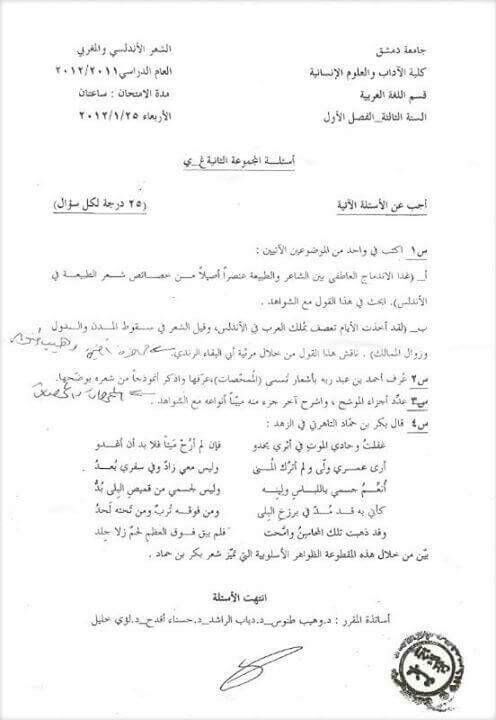 جامعة دمشق
كلية الآداب والعلوم الإنسانية
قسم اللغة العربية
السنة الثالثة_الفصل الأول
الشعر الأندلسي والمغربي
العام الدراسي ٢٠١٢/٢٠١١
مدة الامتحان : ساعتان
الأربعاء ٢٠١٢/١/٢٥
أسئلة المجموعة الثانية غ_ي
أجب عن الأسئلة الآتية (٢٥ درجة لكل سؤال)
س١ اكتب في واحد من الموضوعين الآتيين :
أ_ (غدا الاندماج العاطفي بين الشاعر والطبيعة عنصراً أصيلاً من خصائص شعر الطبيعة في
الأندلس). ابحث في هذا القول مع الشواهد .
ب_ (لقد أخذت الأيام تعصف بملك العرب في الأندلس، وقيل الشعر في سقوط المدن والدول
وزوال الممالك) . ناقش هذا القول من خلال مرثية أبي البقاء الرندي.
س٢ عُرف أحمد بن عبد ربه بأشعار تُسمى (الممحّصات)،عرّفها واذكر أنموذجاً من شعره يوضّحها.
س٣ عدّد أجزاء الموشح ، واشرح آخر جزء منه مبيّناً أنواعه مع الشواهد .
س٤ قال بكر بن حمّاد التاهرتي في الزهد :
غفلتُ وحادي الموتِ في أثري يحدو فإن لم أرُحْ مَيتاً فلا بد أن أغدو
أرى عمري ولّى ولم أترك المُنى وليس معي زادٌ وفي سفري بُعدُ
أُنعّم جسمي باللباسِ ولينِه وليس لجسمي من قميص البِلى بُدُّ
كأني به قد مُدّ في برزخ البِلى ومن فوقه تُربٌ ومن تحته لَحدُ
وقد ذهبت تلك المحاسنُ وامّحت فلم يبق فوق العظم لحمٌ ولا جِلد
بيّن من خلال هذه المقطوعة الظواهر الأسلوبية التي تميّز شعر بكر بن حماد .
انتهت الأسئلة
أساتذة المقرر : د.وهيب طنوس_د.دياب الراشد_د.حسناء أقدح_د.لؤي خليل